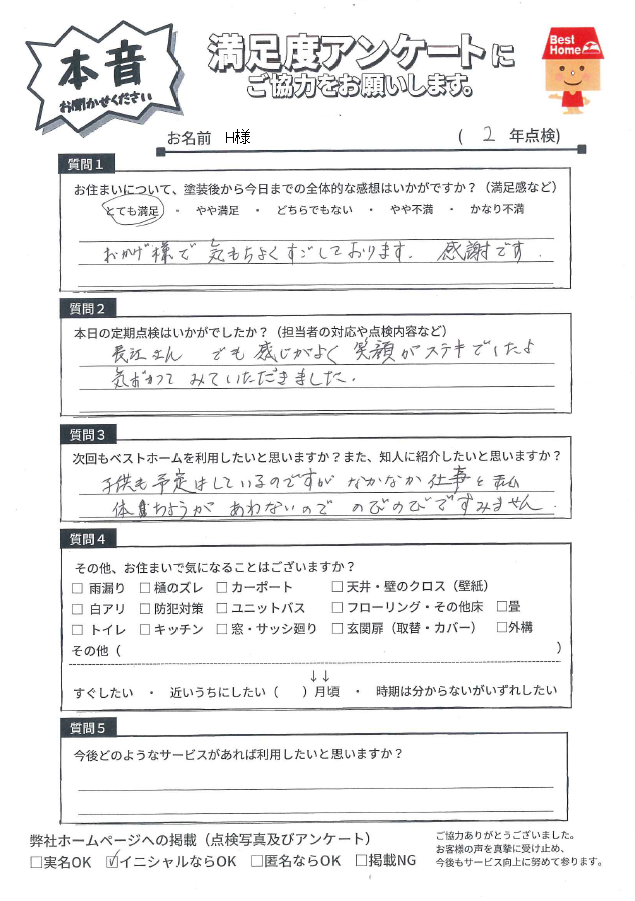 本音
お聞かせください
満足度アンケートに
ご協力をお願いします。
Best
Home
お名前 H様 ( 2 年点検)
質問1
お住まいについて、塗装後から今日までの全体的な感想はいかがですか？（満足感など）
とても満足 ・ やや満足 ・ どちらでもない ・ やや不満 ・ かなり不満
おかげ様で 気もちよくすごしております. 感謝です.
質問2
本日の定期点検はいかがでしたか？（担当者の対応や点検内容など）
長江さん でも感じがよく 笑顔がステキでしたよ
みていただきました.
質問3
次回もベストホームを利用したいと思いますか？また、知人に紹介したいと思いますか？
子供も予定はしているのですが なかなか仕事と私
体調ちょうが あわないので のびのびですみません.
質問4
その他、お住まいで気になることはございますか？
□ 雨漏り □ 樋のズレ □ カーポート □ 天井・壁のクロス（壁紙）
□ 白アリ □ 防犯対策 □ ユニットバス □ フローリング・その他床 □畳
□ トイレ □ キッチン □ 窓・サッシ廻り □ 玄関扉（取替・カバー） □外構
その他（ ）
↓↓
すぐしたい ・ 近いうちにしたい（ ）月頃 ・ 時期は分からないがいずれしたい
質問5
今後どのようなサービスがあれば利用したいと思いますか？
弊社ホームページへの掲載（点検写真及びアンケート）
□実名OK ☑イニシャルならOK □匿名ならOK □掲載NG
ご協力ありがとうございました。
お客様の声を真摯に受け止め、
今後もサービス向上に努めて参ります。